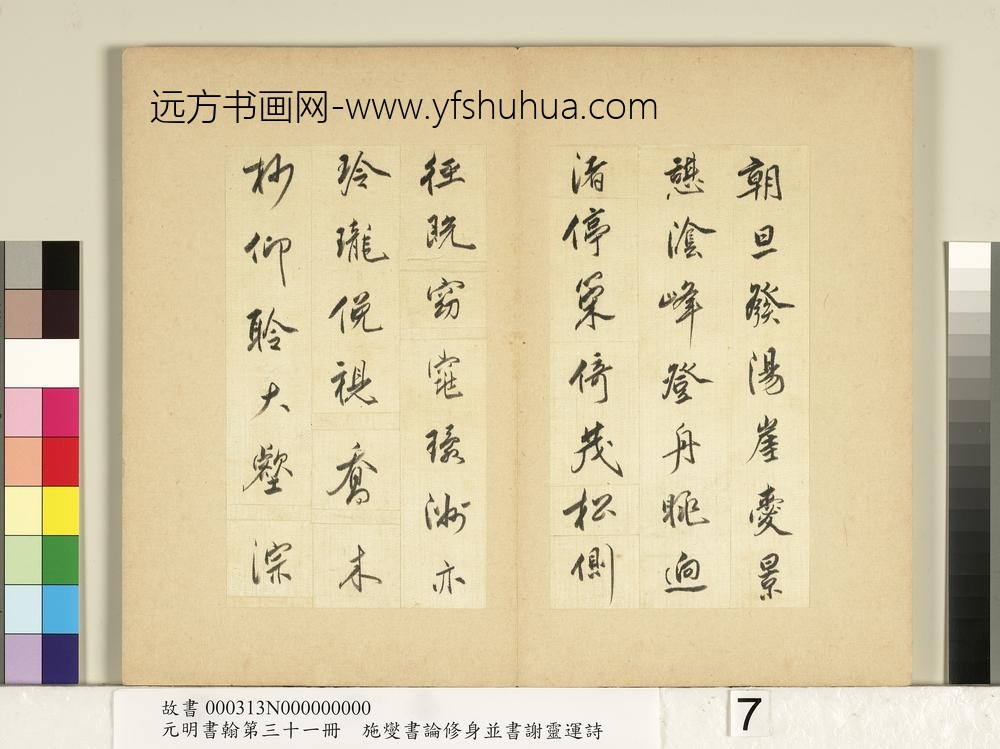 远方书画网-www.yfshuhua.com
朝旦發陽崖景
憇陰峰登舟眺迥
渚停策倚茂松側
徑既窈窕環洲亦
玲瓏俛視喬木
杪仰聆大壑淙
故書 000313N000000000
元明書翰第三十一冊 施燮書論修身並書謝靈運詩
7